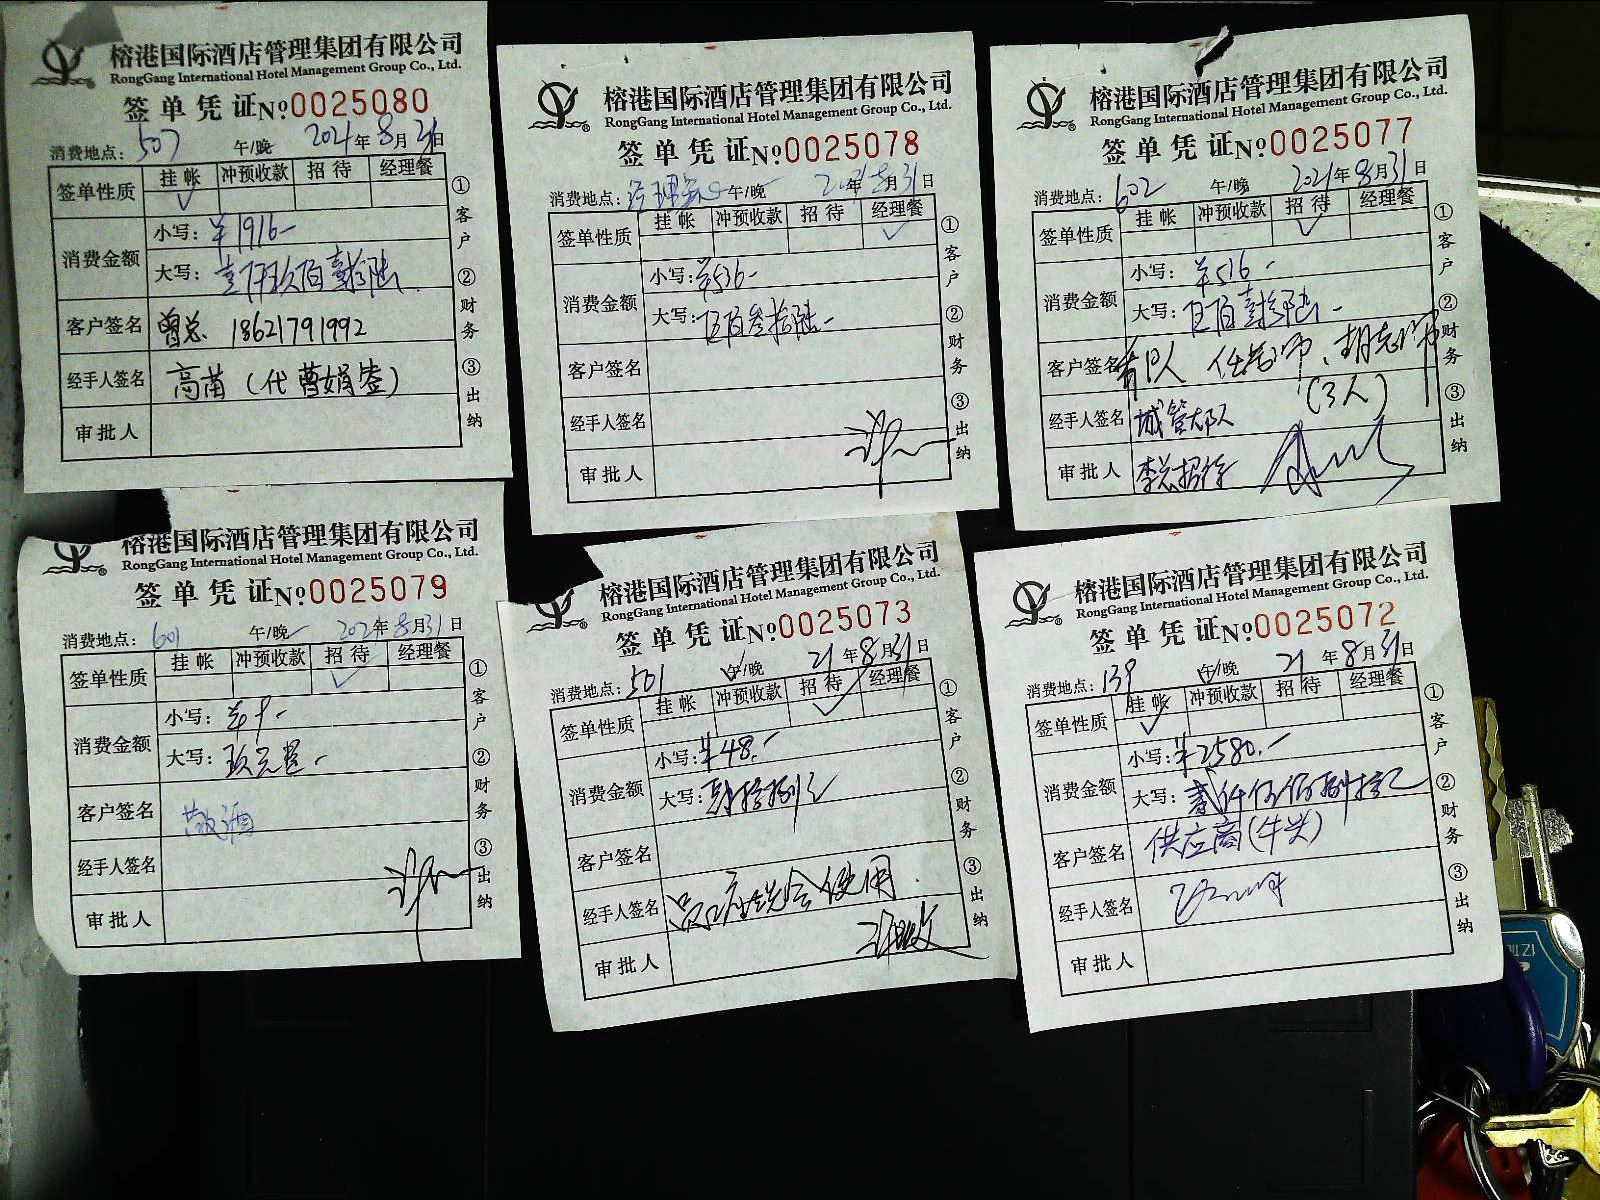 榕港国际酒店管理集团有限公司
RongGang International Hotel Management Group Co., Ltd.
签单凭证No.0025080
消费地点：507 午/晚 2021年8月31日
签单性质 挂帐 冲预收款 招待 经理餐
✓
消费金额 小写：¥1916-
大写：壹仟玖佰壹拾陆
客户签名 曾总 18621791992
经手人签名 高苗（代曹娟签）
审批人
①客户 ②财务 ③出纳
榕港国际酒店管理集团有限公司
RongGang International Hotel Management Group Co., Ltd.
签单凭证No.0025078
消费地点：经理 午/晚 年8月31日
签单性质 挂帐 冲预收款 招待 经理餐
✓
消费金额 小写：¥536-
大写：伍佰叁拾陆-
客户签名
经手人签名
审批人
①客户 ②财务 ③出纳
榕港国际酒店管理集团有限公司
RongGang International Hotel Management Group Co., Ltd.
签单凭证No.0025077
消费地点：602 午/晚 2021年8月31日
签单性质 挂帐 冲预收款 招待 经理餐
✓
消费金额 小写：¥516-
大写：伍佰壹拾陆-
客户签名
（3人）
经手人签名 城管大队
审批人 李总招待
①客户 ②财务 ③出纳
榕港国际酒店管理集团有限公司
RongGang International Hotel Management Group Co., Ltd.
签单凭证No.0025079
消费地点：601 午/晚 202年8月31日
签单性质 挂帐 冲预收款 招待 经理餐
✓
消费金额 小写：¥9-
大写：玖元整-
客户签名 敬酒
经手人签名
审批人
①客户 ②财务 ③出纳
榕港国际酒店管理集团有限公司
RongGang International Hotel Management Group Co., Ltd.
签单凭证No.0025073
消费地点：501 午/晚 21年8月31日
签单性质 挂帐 冲预收款 招待 经理餐
✓
消费金额 小写：¥48.-
大写：肆拾捌元
客户签名
经手人签名 会使用.
审批人
①客户 ②财务 ③出纳
榕港国际酒店管理集团有限公司
RongGang International Hotel Management Group Co., Ltd.
签单凭证No.0025072
消费地点：139 午/晚 21年8月31日
签单性质 挂帐 冲预收款 招待 经理餐
✓
消费金额 小写：¥2580.-
大写：贰仟伍佰捌拾元
客户签名 供应商（牛
经手人签名
审批人
①客户 ②财务 ③出纳